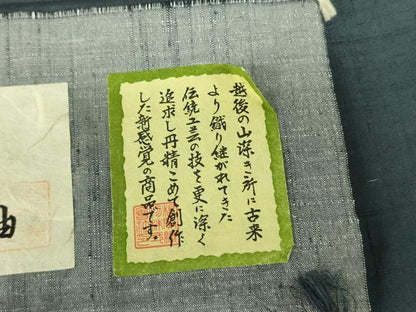 越後の山深き所に古来
より織り継がれてきた
伝統工芸の技を更に深く
追求し丹精こめて創作
した新感覚の商品です。